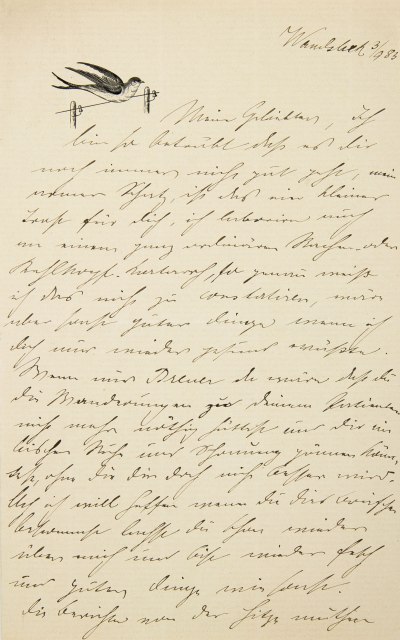 Wandsbek 3/9 85
Mein Geliebter, Ich
bin so betrübt daß es dir
noch immer nicht gut geht, mein
armer Schatz, ist das ein kleiner
Trost für dich, ich laborire auch
an einem ganz ordinären Rachen- oder
Kehlkopf-Katarrh, so genau weiß
ich das nicht zu constatiren, wäre
aber sonst guter Dinge wenn ich
dich nur wieder gesund wüßte.
Wenn nur Breuer da wäre daß du
die Wanderungen zu deinem Patienten
nicht mehr nöthig hättest und dir ein
bischen Ruh und Schonung gönnen könn-
test, ohne die dir doch nicht besser wird.
ich will hoffen wenn du
du schon wieder
und bist wieder frisch
und guter Dinge wie sonst.
Die Berichte von der Hitze